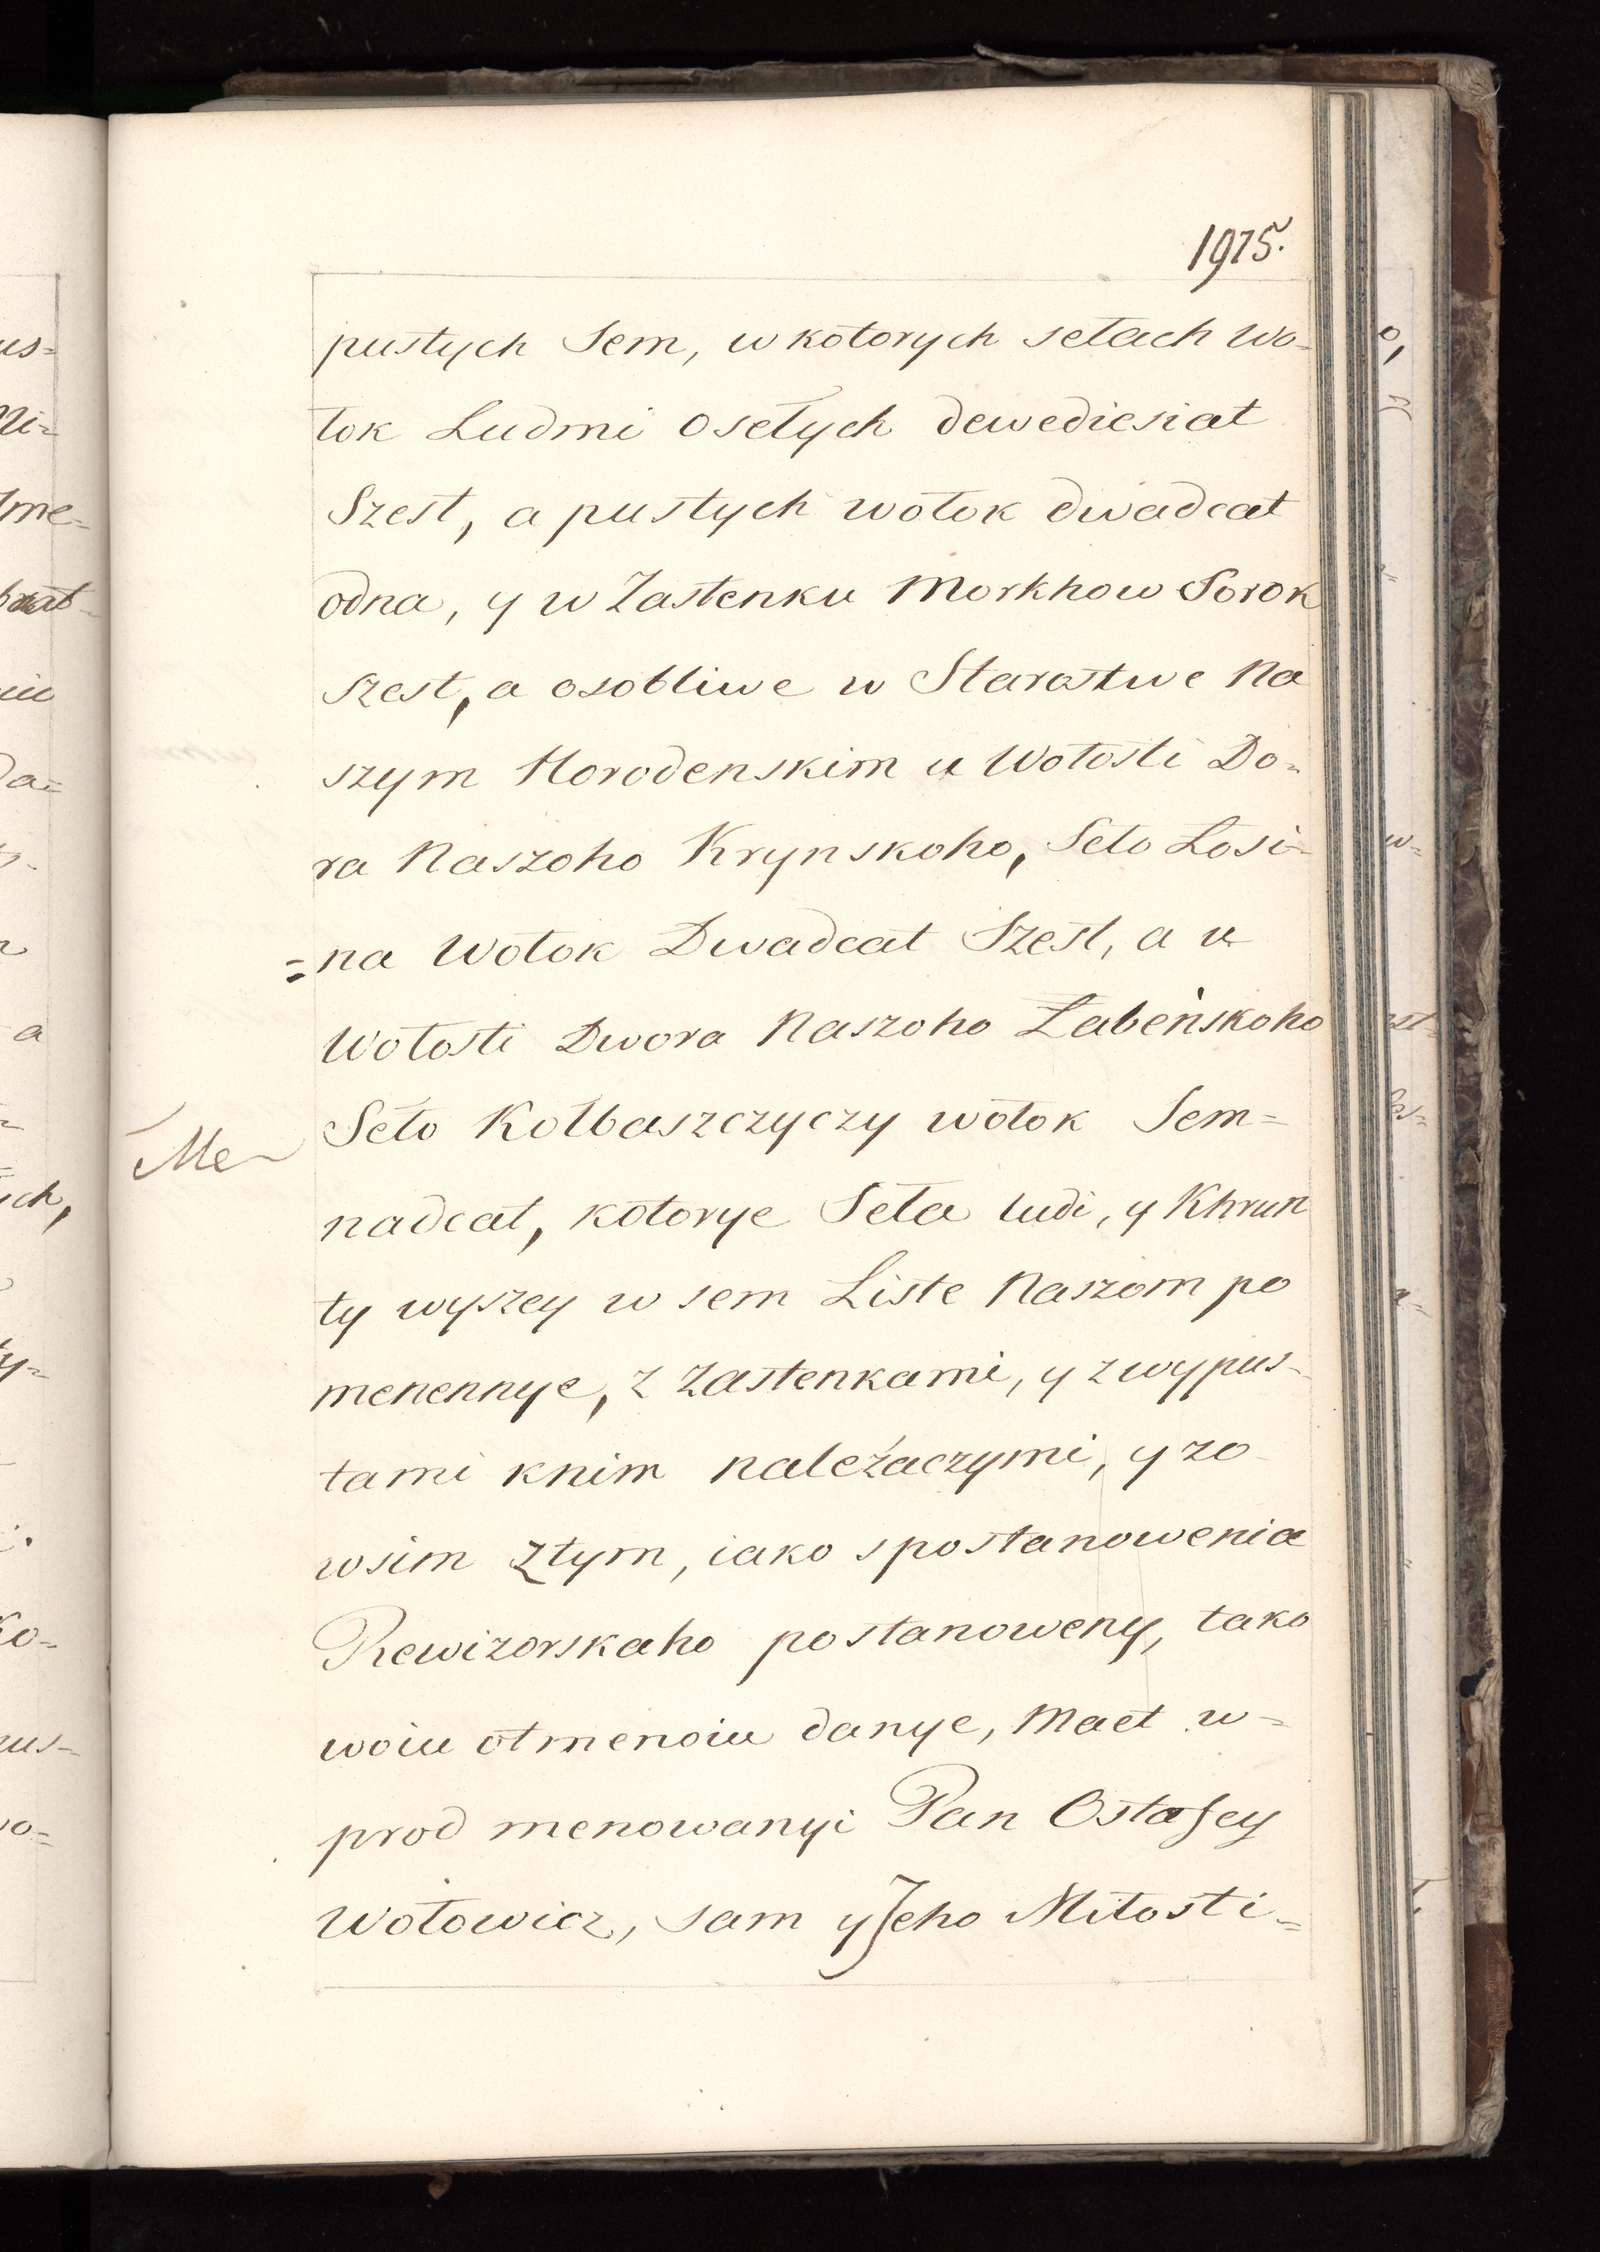 1975.
pustych Sem, w kotorych sełach wo-
łok Ludmi osełych dewediesiat
Szest, a pustych wołok dwadcat
odna, y w Zastenku Morkhow Sorok
szest, a osobliwe w Starostwe Na
szym Horodenskim u Wołosti Do-
ra Naszoho Krynskoho, Seło Łosi-
=na Wołok Dwadcat Szest, a u
Wołosti Dwora Naszoho Łabeńskoho
Seło Kołbaszczyczy wołok Sem=
Me
nadcat, kotorye Seła ludi, y Khrun
ty wyszey w sem Liste Naszom po
menennye, z Zastenkami, y z wypus-
tami knim należaczymi, y zo
wsim ztym, iako spostanowenia
Rewizorskaho postanoweny, tako
woiu otmenoiu danye, Maet w=
prod menowanyi Pan Ostafey
Wołowicz, sam y Jeho Miłosti=